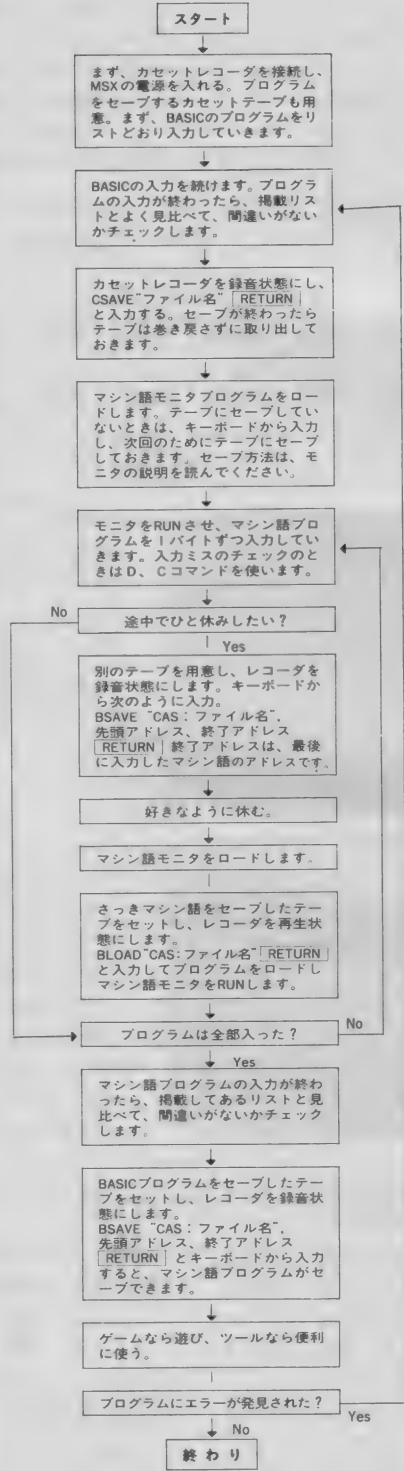 スタート
まず、カセットレコーダを接続し、
MSXの電源を入れる。プログラム
をセーブするカセットテープも用
意。まず、BASICのプログラムをリ
ストどおり入力していきます。
BASICの入力を続けます。プログラ
ムの入力が終わったら、掲載リス
トとよく見比べて、間違いがない
かチェックします。
カセットレコーダを録音状態にし、
CSAVE"ファイル名" RETURN
と入力する。セーブが終わったら
テープは巻き戻さずに取り出して
おきます。
マシン語モニタプログラムをロー
ドします。テープにセーブしてい
ないときは、キーボードから入力
し、次回のためにテープにセーブ
しておきます。セーブ方法は、モ
ニタの説明を読んでください。
モニタをRUNさせ、マシン語プロ
グラムを1バイトずつ入力してい
きます。入力ミスのチェックのと
きはD、Cコマンドを使います。
No
途中でひと休みしたい?
Yes
別のテープを用意し、レコーダを
録音状態にします。キーボードか
ら次のように入力。
BSAVE "CAS:ファイル名",
先頭アドレス、終了アドレス
RETURN 終了アドレスは、最後
に入力したマシン語のアドレスです。
好きなように休む。
マシン語モニタをロードします。
さっきマシン語をセーブしたテー
プをセットし、レコーダを再生状
態にします。
BLOAD"CAS:ファイル名" RETURN
と入力してプログラムをロードし
マシン語モニタをRUNします。
プログラムは全部入った?
No
Yes
マシン語プログラムの入力が終わ
ったら、掲載してあるリストと見
比べて、間違いがないかチェック
します。
BASICプログラムをセーブしたテー
プをセットし、レコーダを録音状
態にします。
BSAVE "CAS:ファイル名",
先頭アドレス、終了アドレス
RETURN とキーボードから入力
すると、マシン語プログラムがセ
ーブできます。
ゲームなら遊び、ツールなら便利
に使う。
プログラムにエラーが発見された?
Yes
No
終わり